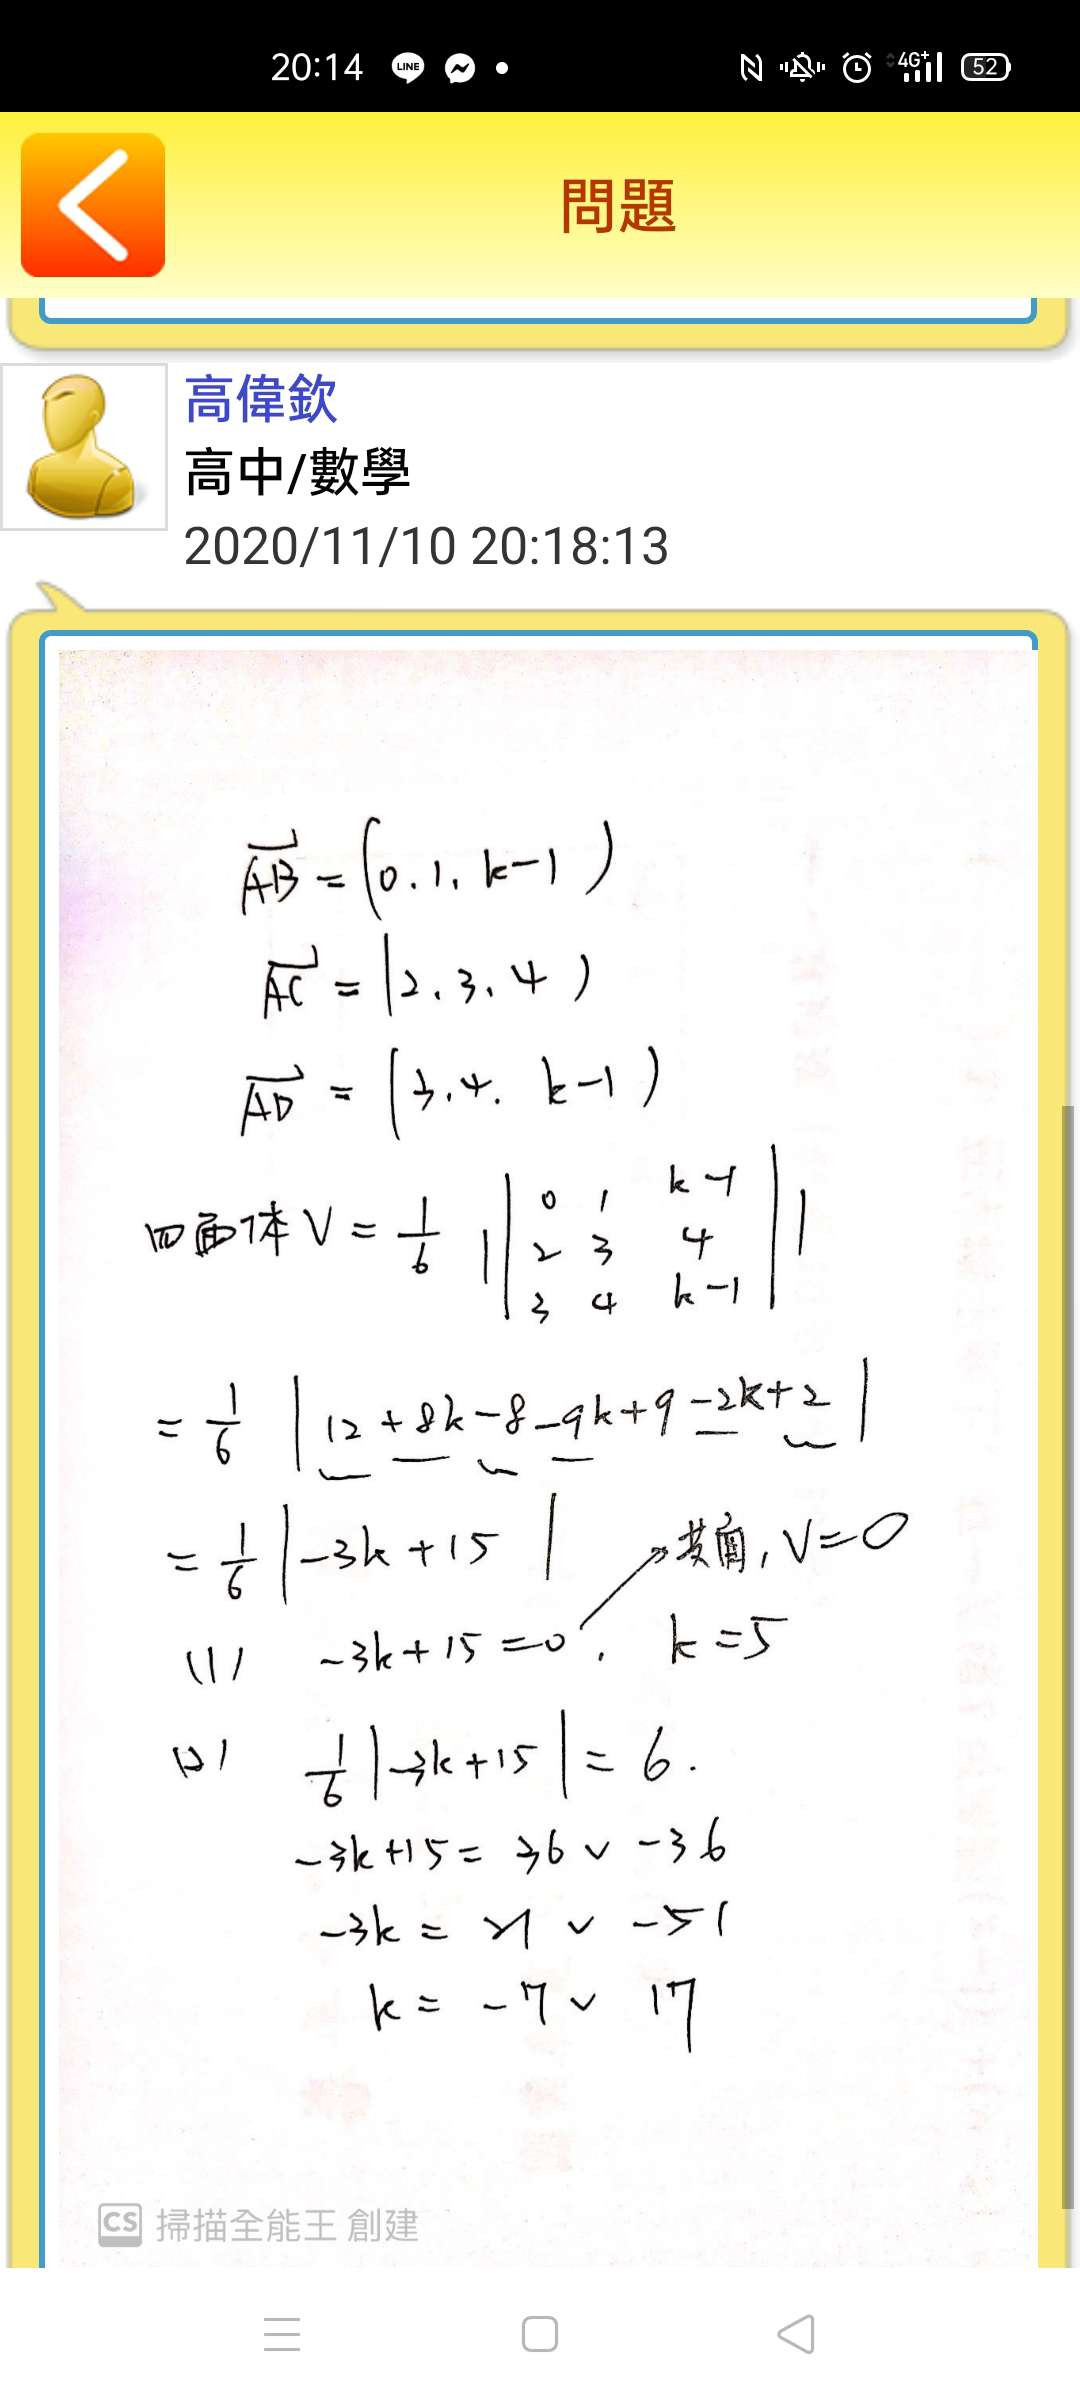 20:14 LINE 4G+ 52
問題
高偉欽
高中/數學
2020/11/10 20:18:13
AB = (0.1. k-1)
AC = (2.3.4)
AD = (3.4. k-1)
四面体 V = 1/6 | | 0 1 k-1
2 3 4
3 4 k-1 | |
= 1/6 | 12 + 8k - 8 - 9k + 9 - 2k + 2 |
= 1/6 | -3k + 15 |
共面, V = 0
(1) -3k + 15 = 0. k = 5
(2) 1/6 | -3k + 15 | = 6.
-3k + 15 = 36 ∨ -36
-3k = 21 ∨ -51
k = -7 ∨ 17
CS 掃描全能王 創建